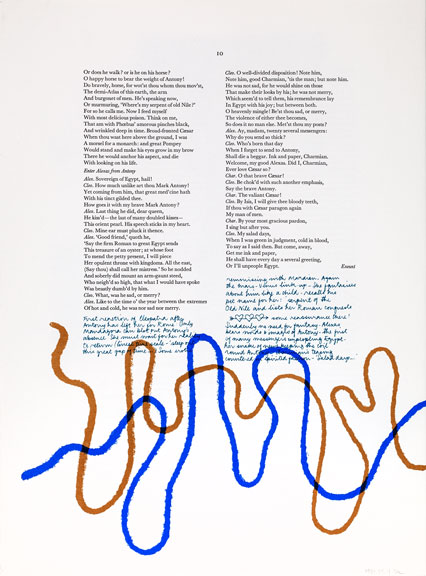 10
Or does he walk? or is he on his horse?
O happy horse to bear the weight of Antony!
Do bravely, horse, for wot'st thou whom thou mov'st,
The demi-Atlas of this earth, the arm
And burgonet of men. He's speaking now,
Or murmuring, 'Where's my serpent of old Nile?'
For so he calls me. Now I feed myself
With most delicious poison. Think on me,
That am with Phœbus' amorous pinches black,
And wrinkled deep in time. Broad-fronted Cæsar
When thou wast here above the ground, I was
A morsel for a monarch: and great Pompey
Would stand and make his eyes grow in my brow
There would anchor his aspect, and die
With looking on his life.
Enter Alexas from Antony
Alex. Sovereign of Egypt, hail!
Cleo. How much unlike art thou Mark Antony!
Yet coming from him, that great med'cine hath
With his tinct gilded thee.
How goes it with my brave Mark Antony?
Alex. Last thing he did, dear queen,
He kiss'd—the last of many doubled kisses—
This orient pearl. His speech sticks in my heart.
Cleo. Mine ear must pluck it thence.
Alex. 'Good friend,' quoth he,
'Say the firm Roman to great Egypt sends
This treasure of an oyster; at whose foot
To mend the petty present, I will piece
Her opulent throne with kingdoms. All the east,
(Say thou) shall call her mistress.' So he nodded
And soberly did mount an arm-gaunt steed,
Who neigh'd so high, that what I would have spoke
Was beastly dumb'd by him.
Cleo. What, was he sad, or merry?
Alex. Like to the time o' the year between the extremes
Of hot and cold, he was nor sad nor merry.
Cleo. O well-divided disposition! Note him,
Note him, good Charmian, 'tis the man; but note him.
He was not sad, for he would shine on those
That make their looks by his; he was not merry,
Which seem'd to tell them, his remembrance lay
In Egypt with his joy; but between both.
O heavenly mingle! Be'st thou sad, or merry,
The violence of either thee becomes,
So does it no man else. Met'st thou my posts?
Alex. Ay, madam, twenty several messengers:
Why do you send so thick?
Cleo. Who's born that day
When I forget to send to Antony,
Shall die a beggar. Ink and paper, Charmian.
Welcome, my good Alexas. Did I, Charmian,
Ever love Cæsar so?
Char. O that brave Cæsar!
Cleo. Be chok'd with such another emphasis,
Say the brave Antony.
Char. The valiant Cæsar!
Cleo. By Isis, I will give thee bloody teeth,
If thou with Cæsar paragon again
My man of men.
Char. By your most gracious pardon,
I sing but after you.
Cleo. My salad days,
When I was green in judgment, cold in blood,
To say as I said then. But come, away,
Get me ink and paper,
He shall have every day a several greeting,
Or I'll unpeople Egypt. Exeunt
First reaction of Cleopatra after
Antony has left her for Rome. Only
Mandragora can blot out Antony's
absence. She must wait for her
to return
this great gap of time
reminiscing with Mardian. Again
the Mars-Venus link-up. She fantasises
about him like a child. recalls his
pet name for her: serpent of the
Old Nile and lists her Roman conquests
some reassurance there!
Suddenly no need for fantasy. Alexas
bears inside images of Antony. the first
of many messengers unpeopling Egypt.
her snakes of
round Antony